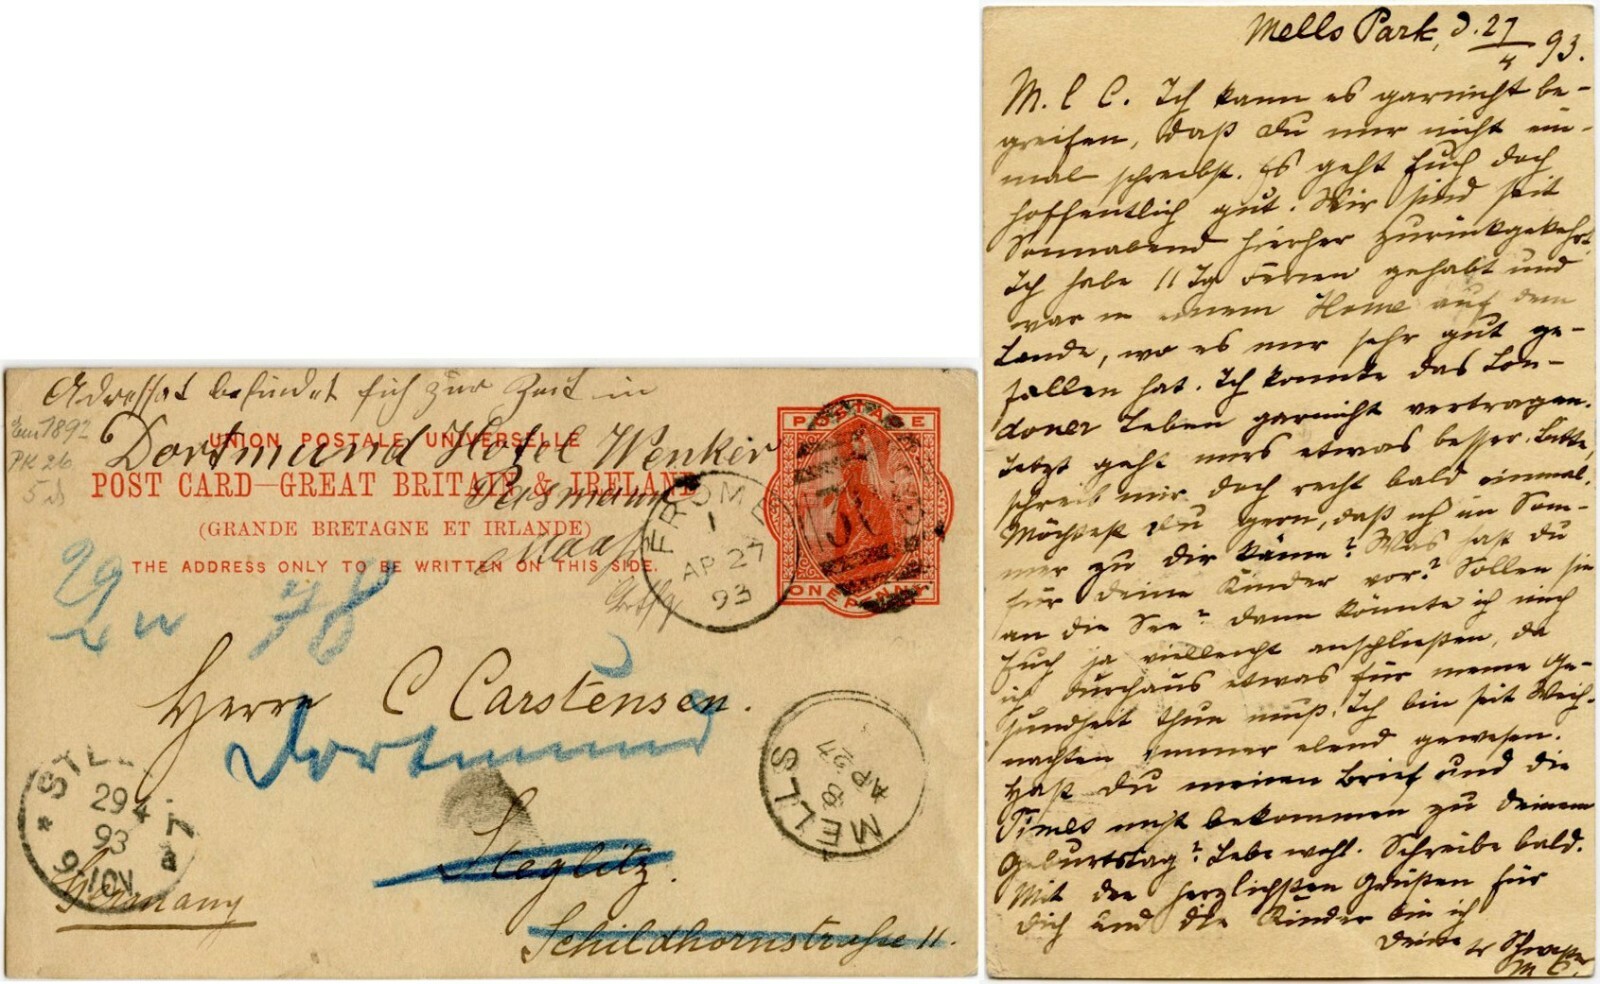 Adressat befindet sich zur Zeit in
Dortmund Hotel Wenker
Em 1892
PK 26
UNION POSTALE UNIVERSELLE
POST CARD—GREAT BRITAIN & IRELAND
(GRANDE BRETAGNE ET IRLANDE)
THE ADDRESS ONLY TO BE WRITTEN ON THIS SIDE.
POSTAGE
ONE PENNY
FROME
1
AP 27
93
Herrn C Carstensen.
Dortmund
Steglitz.
Schildhornstraße 11.
Germany
MELLS
AP 27
93
29 4
93
6-7 N
Mells Park, d. 27/4 93.
M. l C. Ich kann es garnicht be-
greifen, daß Du mir nicht ein-
mal schreibst. Es geht Euch doch
hoffentlich gut. Wir sind seit
Sonnabend hierher zurückgekehrt.
Ich habe 11 Tg Ferien gehabt und
war in einem Home auf dem
Lande, wo es mir sehr gut ge-
fallen hat. Ich konnte das Lon-
doner Leben garnicht vertragen.
Jetzt geht mirs etwas besser. Bitte,
schreib mir doch recht bald einmal.
Möchtest Du gern, daß ich im Som-
mer zu Dir käme? Was hast Du
für Deine Kinder vor? Sollen sie
an die See? Dann könnte ich mich
Euch ja vielleicht anschließen, da
ich durchaus etwas für meine Ge-
sundheit thun muß. Ich bin seit Weih-
nachten immer elend gewesen.
Hast Du meinen Brief und die
Times nicht bekommen zu Deinem
Geburtstag? Lebe wohl. Schreibe bald.
Mit den herzlichsten Grüßen für
Dich und die Kinder bin ich
Deine Schwester
M C.